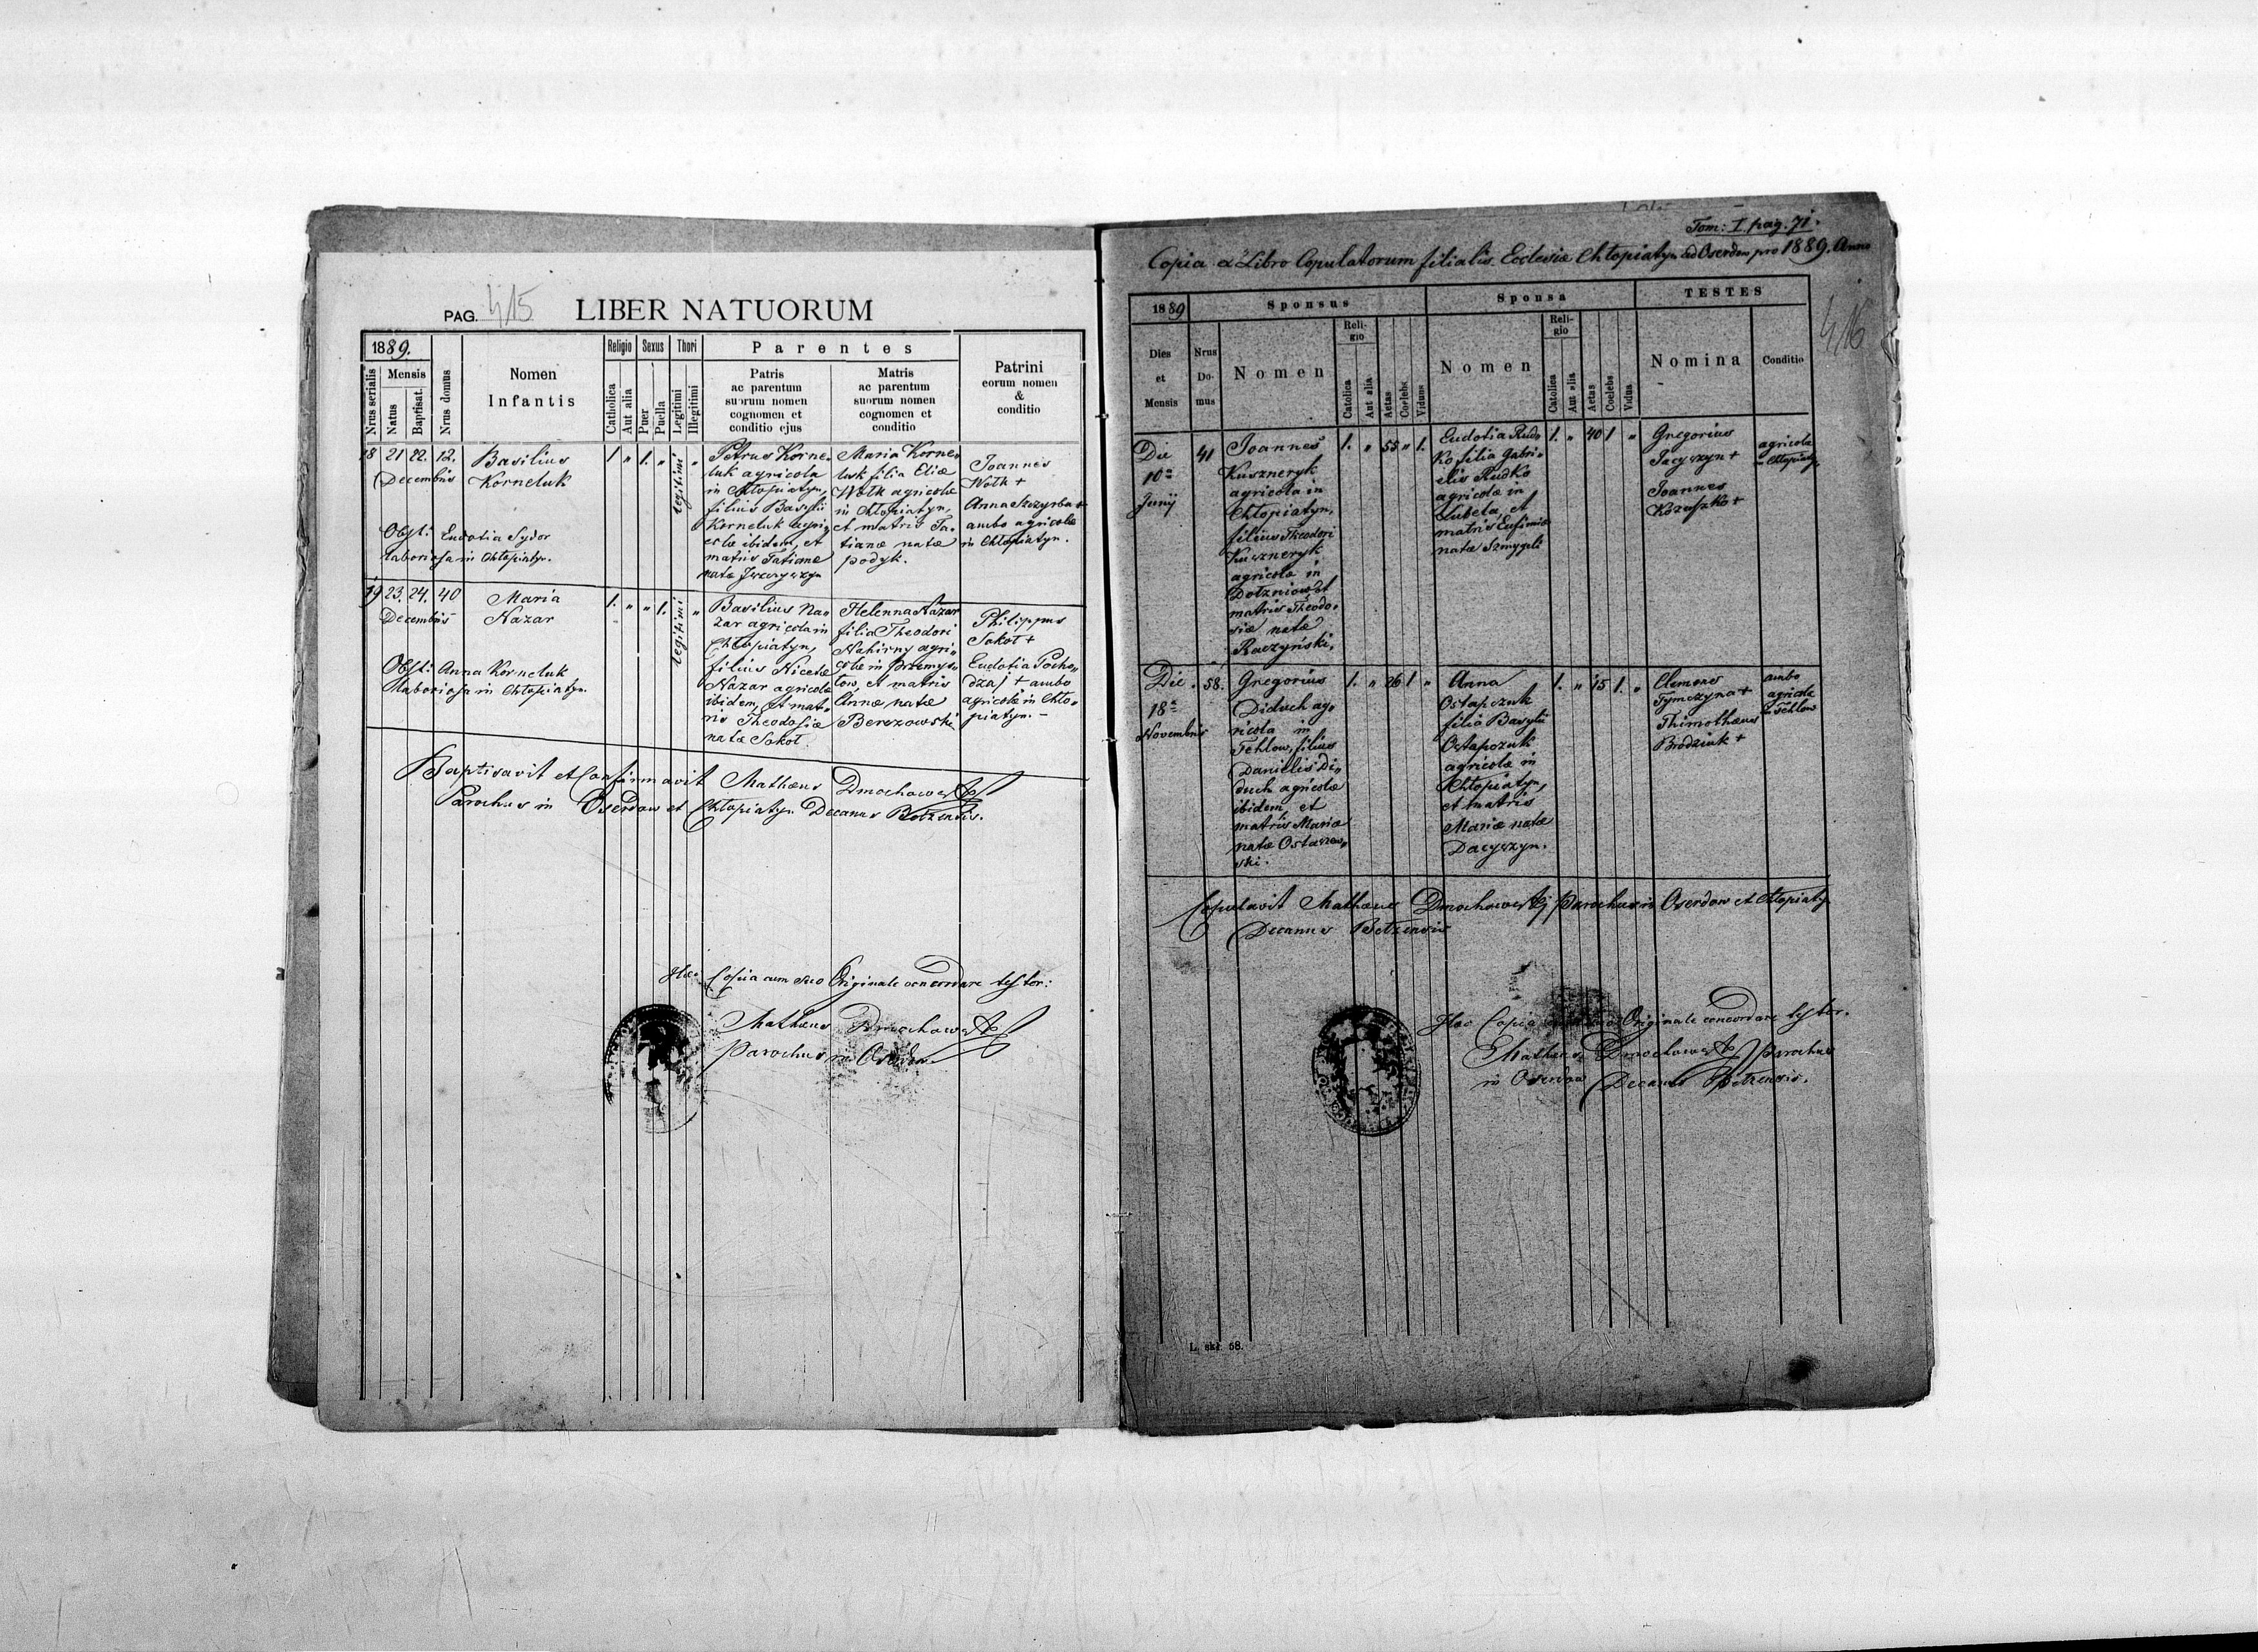 PAG. 415 LIBER NATUORUM
1889.
Nrus serialis
Mensis
Natus
Baptisat.
Nrus domus
Nomen
Infantis
Religio
Catholica
Aut alia
Sexus
Puer
Puella
Thori
Legitimi
Illegitimi
Parentes
Patris
ac parentum
suorum nomen
cognomen et
conditio ejus
Matris
ac parentum
suorum nomen
cognomen et
conditio
Patrini
eorum nomen
&
conditio
18 21 22. 12.
Decembris
Basilius
Korneluk
1 " 1. " legitimi "
Petrus Korne„
luk agricola
in Chłopiatyn,
filius Basilii
Korneluk agri„
colæ ibidem, et
matris Tatianæ
natæ
Maria Korne„
luk filia Eliæ
Wołk agricolæ
in Chłopiatyn,
et matris Ta„
tianæ natæ
podyk.
Joannes
Wołk +
Anna Szczyrba +
ambo agricolæ
in Chłopiatyn.
Obst: Eudotia Sydor
laboriosa in Chłopiatyn.
19 23. 24. 40
Decembris
Maria
Nazar
1. " " 1. legitimi "
Basilius Na„
zar agricola in
Chłopiatyn,
filius Nicetæ
Nazar agricolæ
ibidem, et mat„
ris Theodosiæ
natæ Sokoł.
Helenna Nazar
filia Theodori
Nahirny agri„
colæ in Przemys„
łow, et matris
Annæ natæ
Berezowski
Philippus
Sokoł +
Eudotia Pocho„
dzaj + ambo
agricolæ in Chło„
piatyn. –
Obst: Anna Korneluk
laboriosa in Chłopiatyn.
Baptisavit et Confirmavit Mathæus Dmochowski
Parochus in Oserdow et Chłopiatyn Decanus Bełzensis.
Hæc Copia cum suo Originale concordare testor:
Mathæus Dmochowski
Parochus in Oserdow
Tom: I. pag. 71.
Copia ex Libro Copulatorum filialis Ecclesiæ Chłopiatyn ad Oserdow pro 1889. Anno
416
1889
Dies
et
Mensis
Nrus
Do-
mus
Sponsus
Nomen
Reli-
gio
Catolica
Aut alia
Aetas
Coelebs
Viduus
Sponsa
Nomen
Reli-
gio
Catolica
Aut alia
Aetas
Coelebs
Vidua
TESTES
Nomina
Conditio
Die
10ª
Junij
41
Joannes
Kuszneryk
agricola in
Chłopiatyn,
filius Theodori
Kuszneryk
agricolæ in
Dołzniow, et
matris Theodo„
siæ natæ
Raczyński,
1. " 55 " 1.
Eudotia Rud„
ko filia Gabri„
elis Rudko
agricolæ in
Lubela, et
matris Eufimiæ
natæ Szmygeli
1. " 40 1 "
Gregorius
Jacyszyn +
Joannes
Kożuszko +
agricolæ
in Chłopiatyn
Die
18ª
Novembris
58.
Gregorius
Diduch ag„
ricola in
Tehlow, filius
Danielis Di„
duch agricolæ
ibidem, et
matris Mariæ
natæ Ostaszew„
ski.
1. " 26 1 "
Anna
Ostapczuk
filia Basylii
Ostapczuk
agricolæ in
Chłopiatyn,
et matris
Mariæ natæ
Dacyszyn.
1. " 15 1. "
Clemens
Tymczyna +
Thimotheus
Brodziuk +
ambo
agricolæ
in Tehlow
Copulavit Mathæus Dmochowski Parochus in Oserdow et Chłopiatyn
Decanus Bełzensis
Hæc Copia cum suo Originale concordare testor.
Mathæus Dmochowski Parochus
in Oserdow Decanus Bełzensis.
L. skł. 68.